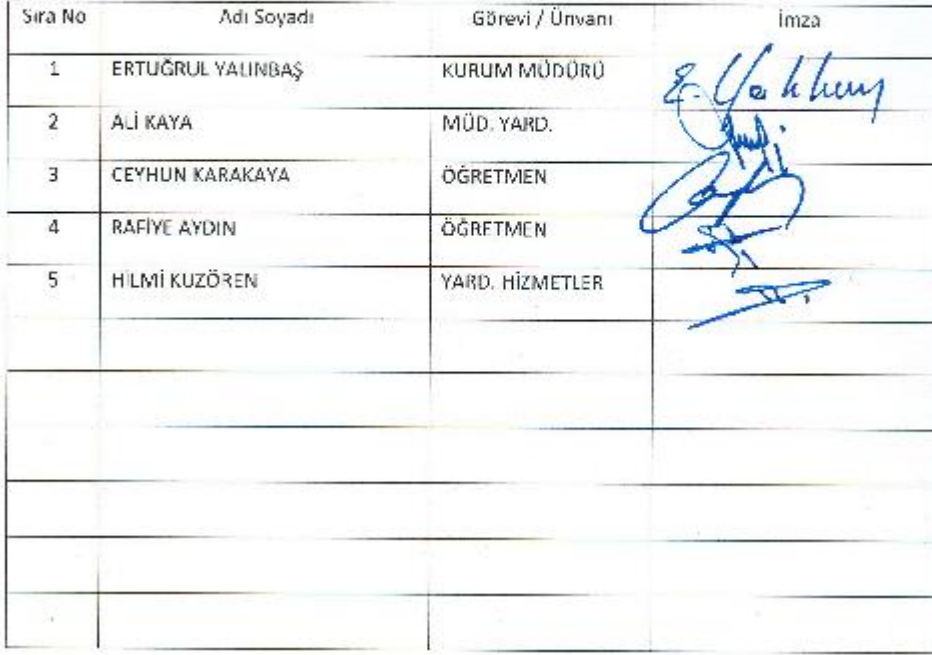 Sıra No Adı Soyadı Görevi / Ünvanı İmza
1 ERTUĞRUL YALINBAŞ KURUM MÜDÜRÜ
2 ALİ KAYA MÜD. YARD.
3 CEYHUN KARAKAYA ÖĞRETMEN
4 RAFİYE AYDIN ÖĞRETMEN
5 HİLMİ KUZÖREN YARD. HİZMETLER